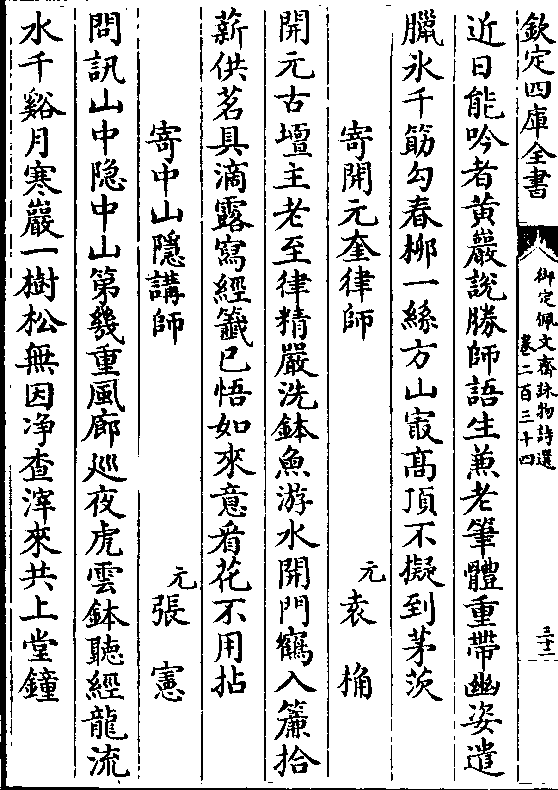 欽定四庫全書
御定佩文齋詠物詩選
卷二百三十四
三十二
近日能吟者黄巖說勝師語生兼老筆體重帶幽姿遣
臘氷千筯勾春栁一絲方山㝡髙頂不擬到茅茨
寄開元奎律師
元袁桷
開元古壇主老至律精嚴洗鉢魚游水開門鶴入簾拾
薪供茗具滴露寫經籤已悟如來意看花不用拈
寄中山隱講師
元張憲
問訊山中隐中山第幾重風廊廵夜虎雲鉢聽經龍流
水千谿月寒巖一樹松無因凈查滓來共上堂鐘